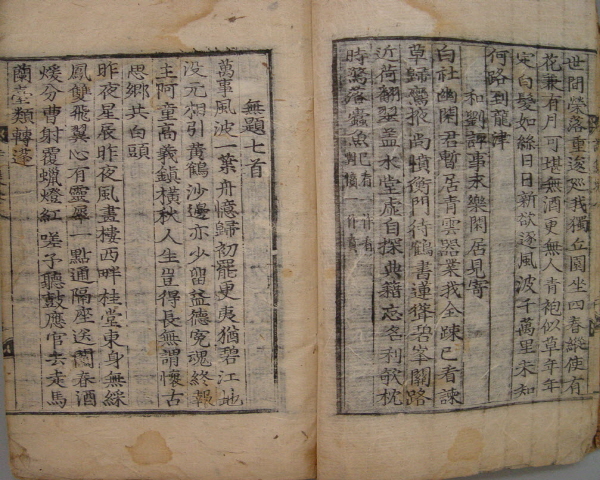 世間榮落重逡巡我獨丘園坐四春縱使有
花兼有月可堪無酒更無人青袍似草年年
定白髮如絲日日新欲逐風波千萬里未知
何路到龍津
和劉評事永樂閑居見寄
白社幽閑君暫居青雲器業我全疎已看諫
草歸鸞掖尚憤衡門待鶴書蓮聳碧峯關路
近荷翻翠蓋水堂虛自探典籍忘名利欹枕
時驚落蠹魚
無題七首
萬事風波一葉舟憶歸初罷更夷猶碧江地
没元相引黃鶴沙邊亦少留益德冤魂終報
主阿童高義鎮橫秋人生豈得長無謂懷古
思鄉共白頭
昨夜星辰昨夜風畫樓西畔桂堂東身無綵
鳳雙飛翼心有靈犀一點通隔座送鬮春酒
煖分曹射覆蝋燈紅嗟予聽鼓應官去走馬
蘭臺類轉蓬